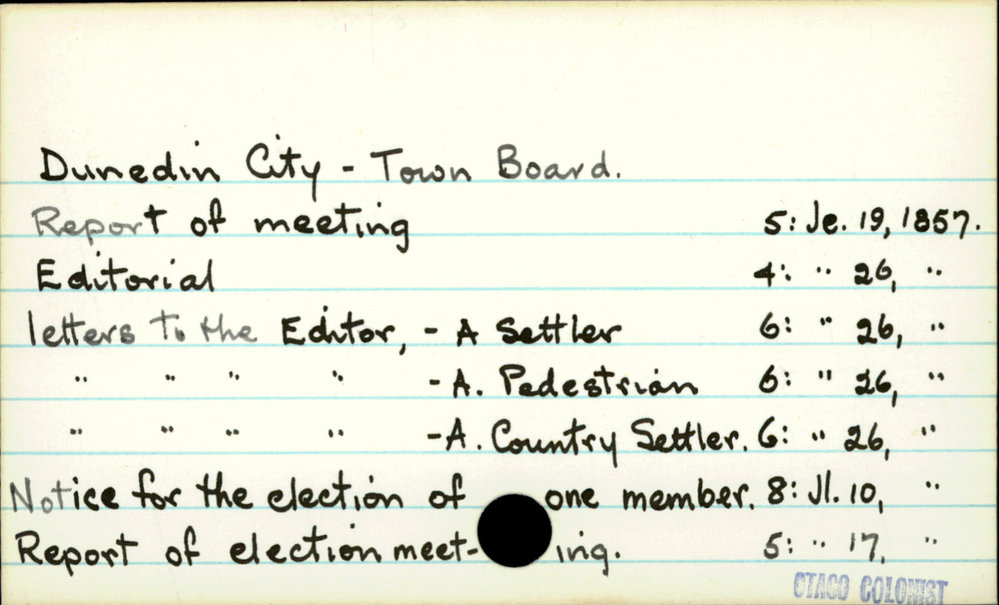 Dunedin City - Town Board.
Report of meeting 5: Je. 19, 1857.
Editorial 4: " 26, "
letters to the Editor, - A Settler 6: " 26, "
" " " " - A. Pedestrian 6: " 26, "
" " " " - A. Country Settler. 6: " 26, "
Notice for the election of one member. 8: Jl. 10, "
Report of election meet- ing. 5: " 17, "
OTAGO COLONIST